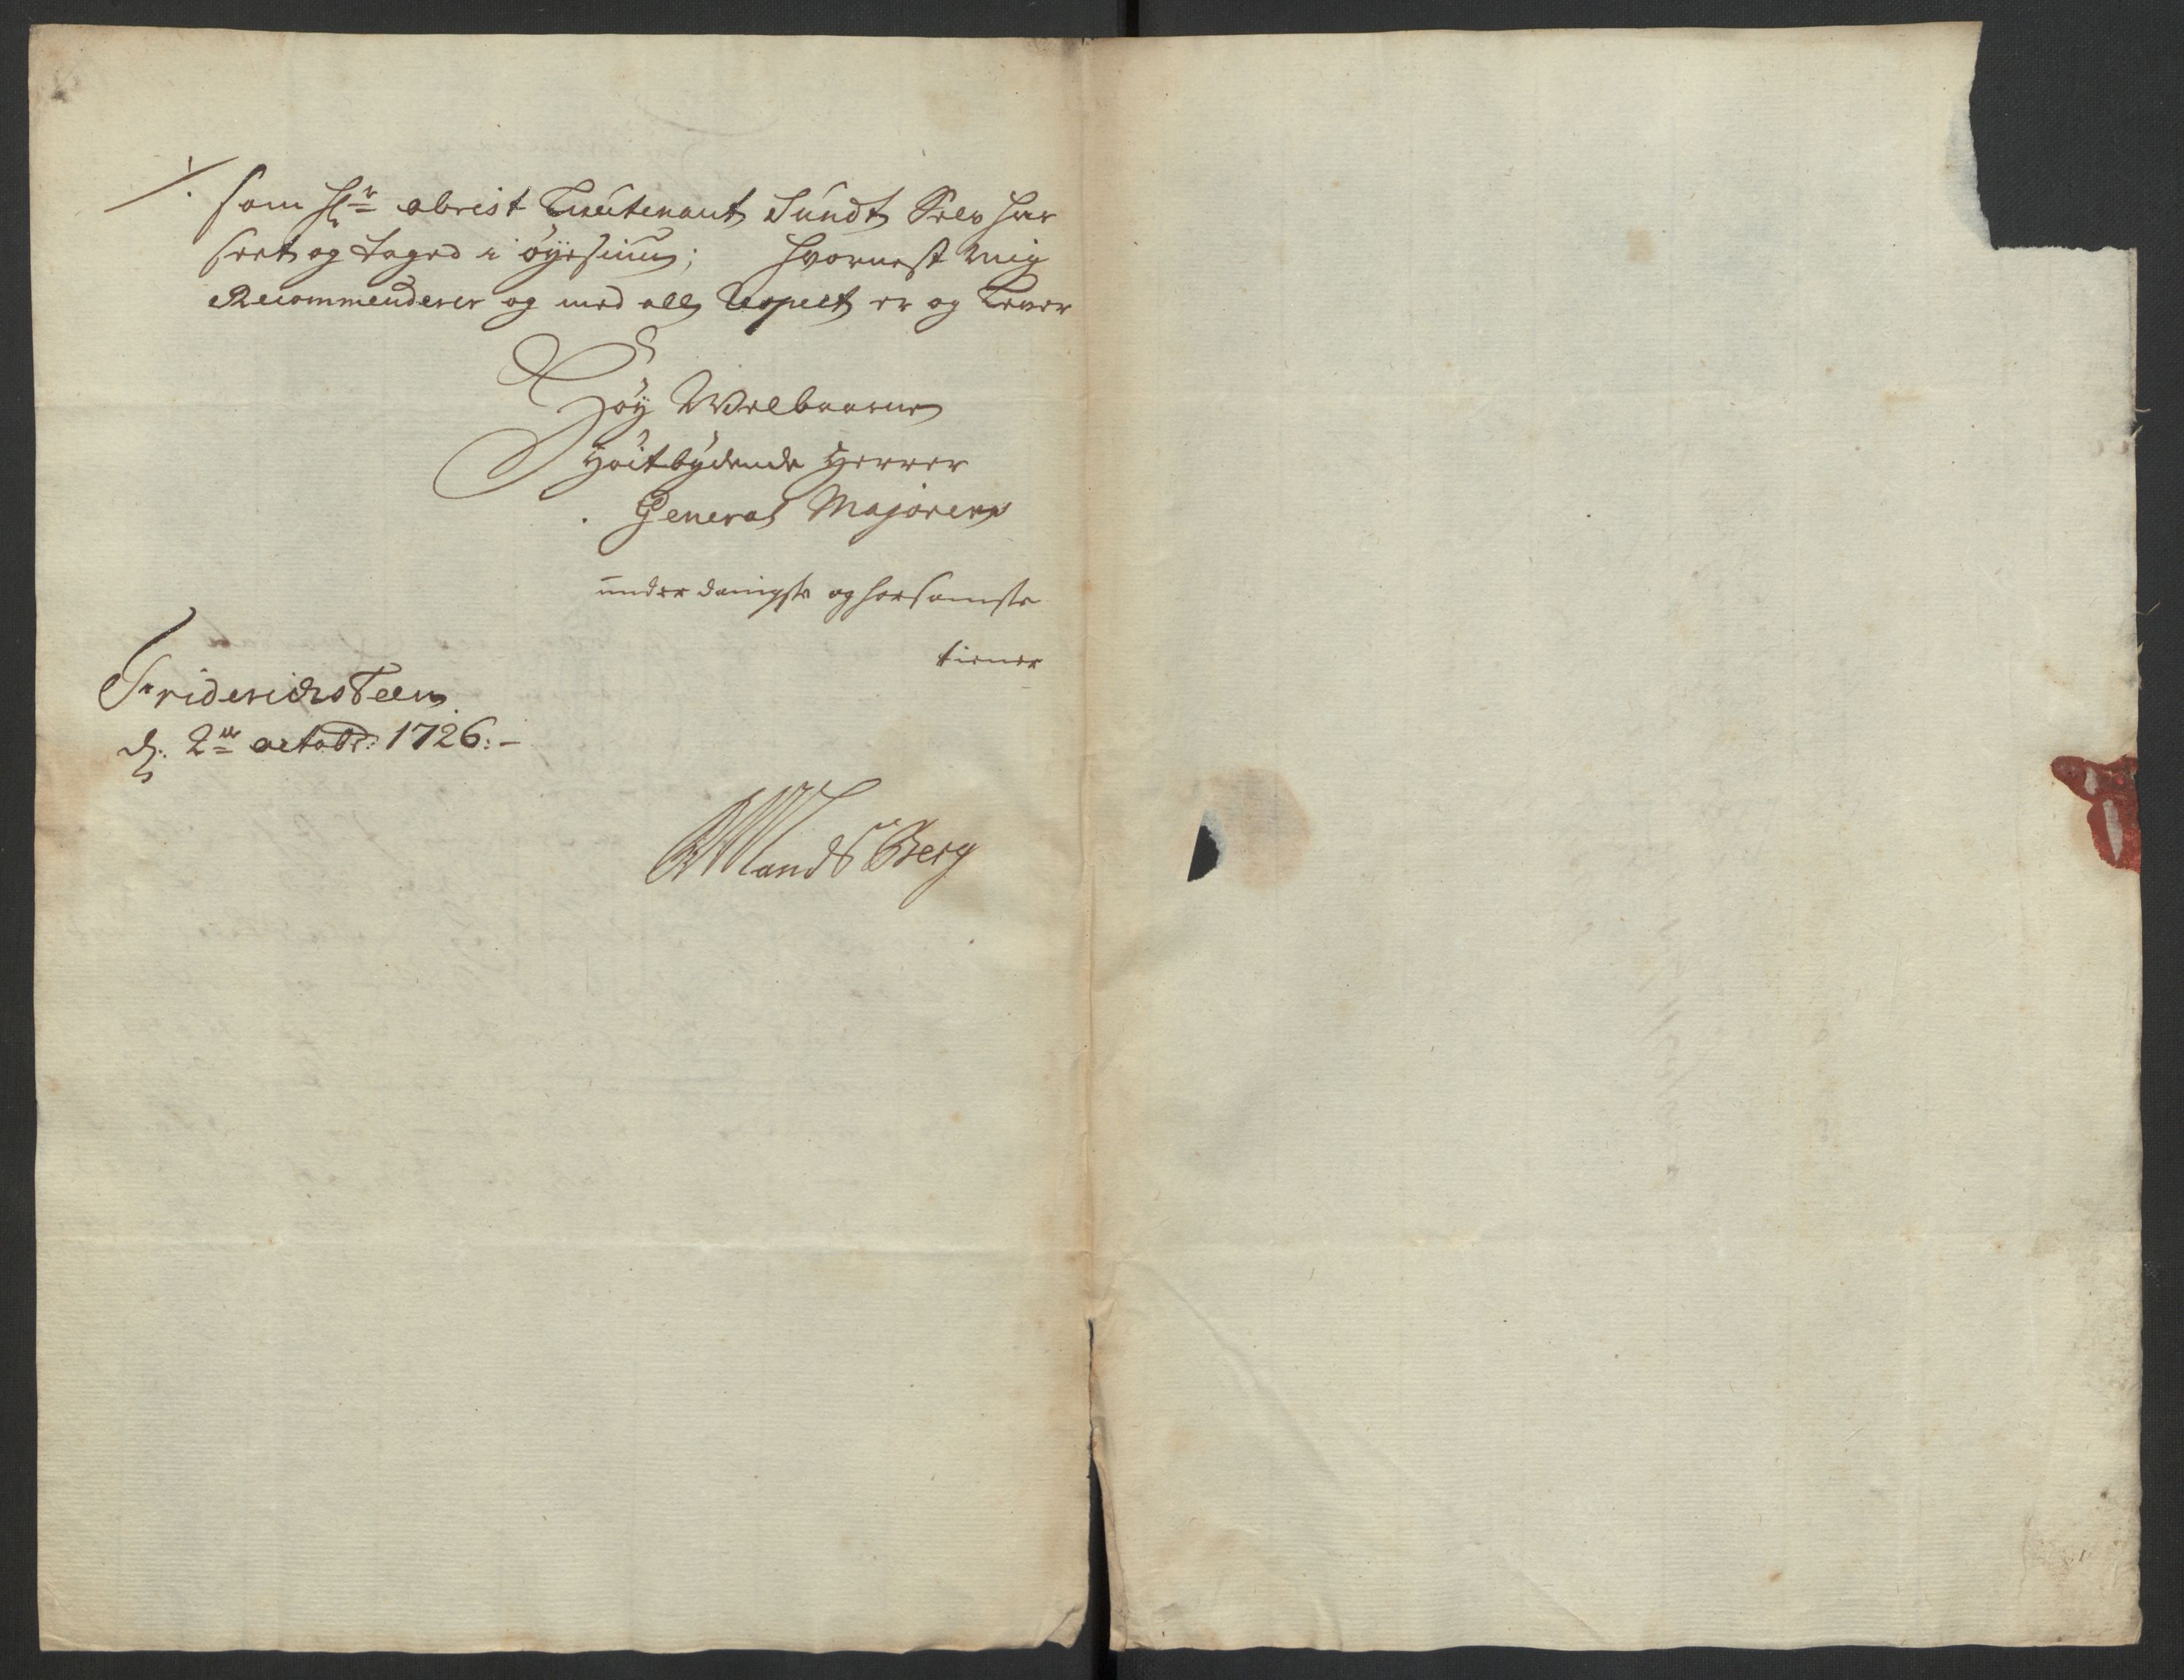 ·/. som Hr obrist Lieutenant Sundt Selv har
seet og taged i øyesiun; hvornest mig
Recommenderer og med all Respect er og Lever
Høy Welbaarne
Høitbydende Herrer
General Majorens
underdanigste og horsomste
tiener
Friderichsteen
d: 2de octobr: 1726:-
Mandsberg